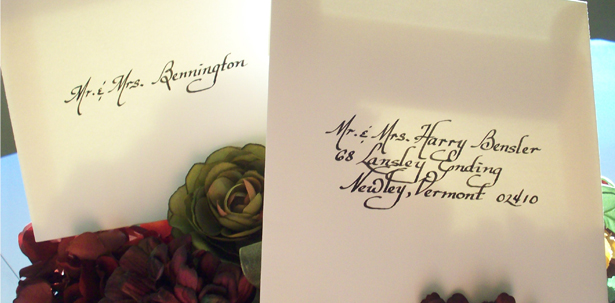 Mr. & Mrs. Bennington
Mr. & Mrs. Harry Bensler
68 Lansley Ending
Newley, Vermont 02410